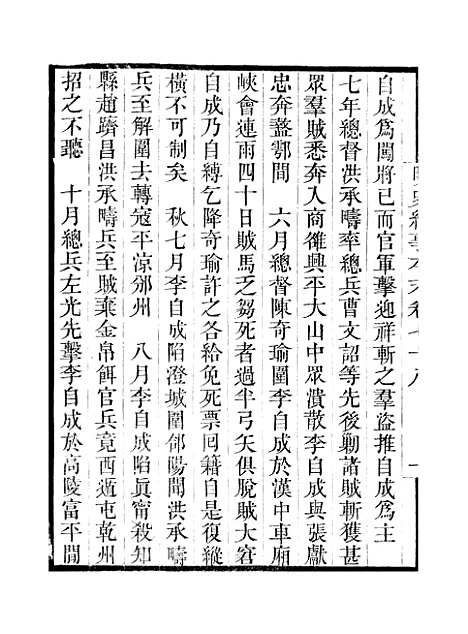 自成爲闖將已而官軍擊迎祥斬之羣盜推自成爲主
七年總督洪承疇率總兵曹文詔等先後勦諸賊斬獲甚
眾羣賊悉奔入商雒興平大山中眾潰散李自成與張獻
忠奔盩鄠間　六月總督陳奇瑜圍李自成於漢中車廂
峽會連雨四十日賊馬乏芻死者過半弓矢俱脫賊大窘
自成乃自縛乞降奇瑜許之各給免死票回籍自是復縱
橫不可制矣　秋七月李自成陷澄城圍郃陽聞洪承疇
兵至解圍去轉寇平涼邠州　八月李自成陷眞甯殺知
縣趙躋昌洪承疇兵至賊棄金帛餌官兵竟西遁屯乾州
招之不聽　十月總兵左光先擊李自成於高陵富平間